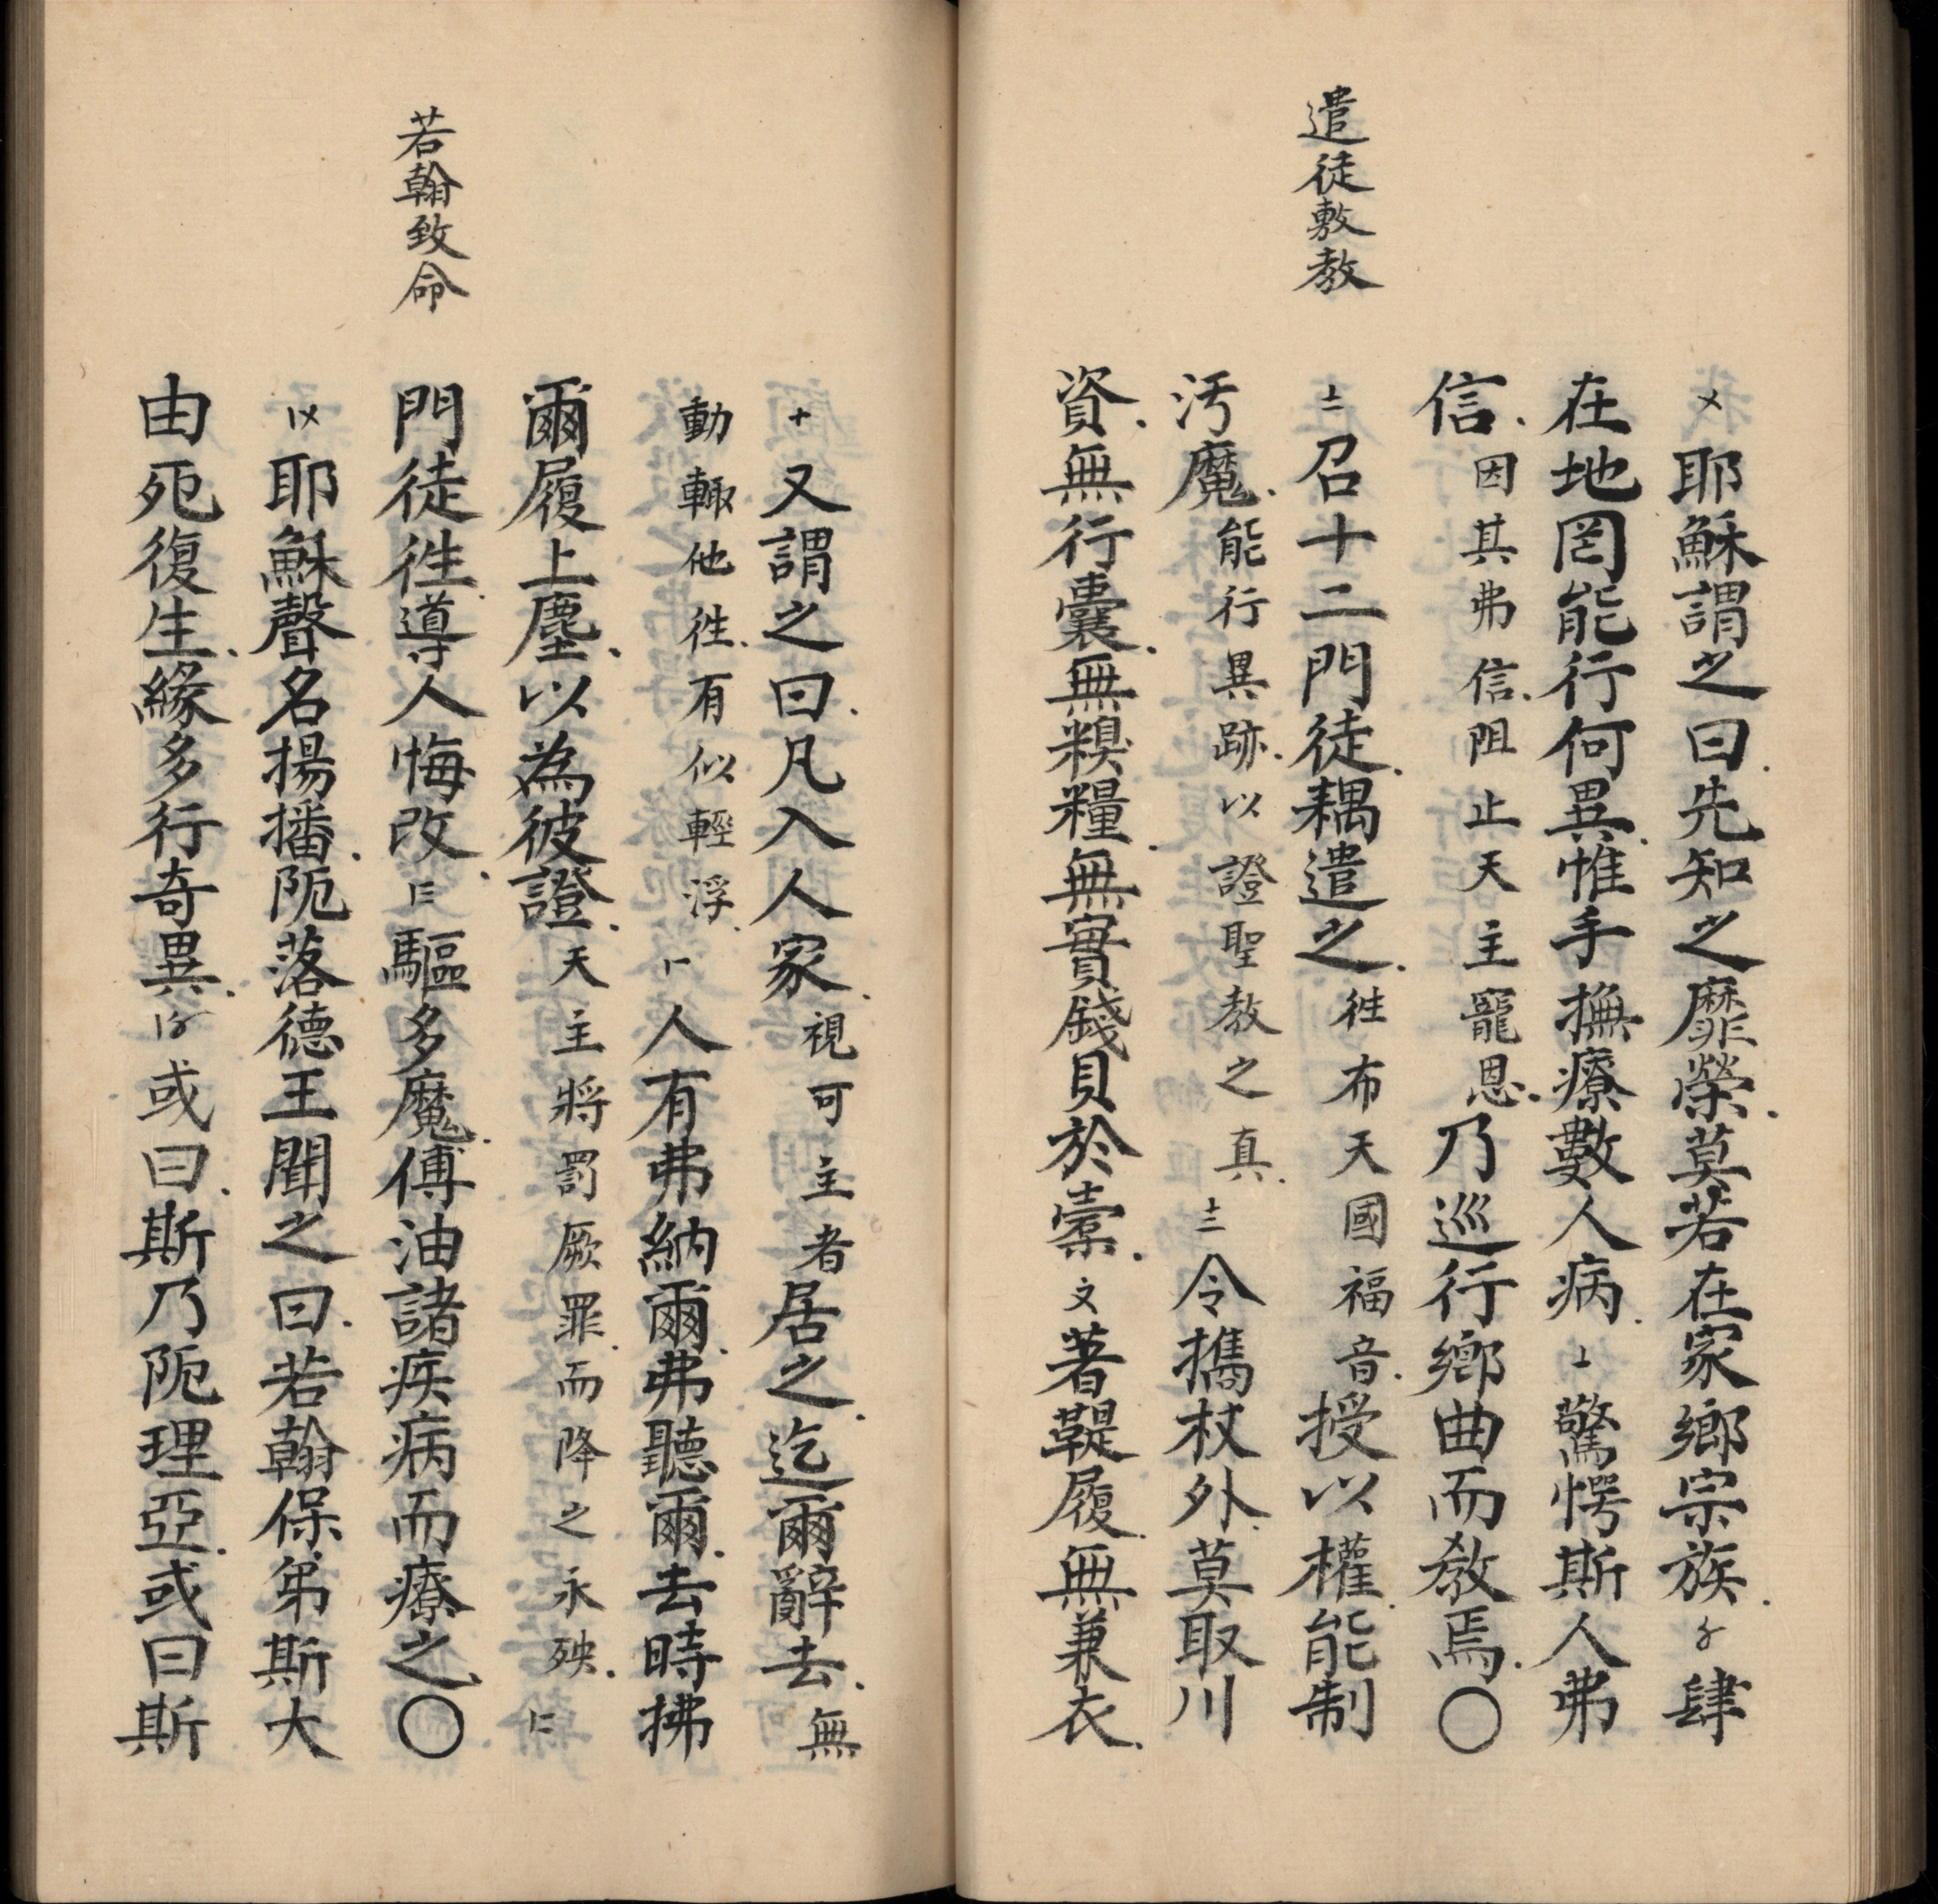 遣徒敷教
〤 耶穌謂之曰先知之靡榮莫若在家鄉宗族 〥 肆
在地罔能行何異惟手撫療數人病 〦 驚愕斯人弗
信因其弗信阻止天主寵恩乃巡行鄉曲而教焉〇
〧 召十二門徒耦遣之徃布天國福音授以權能制
汚魔能行異跡以證聖教之真 〨 令攜杖外莫取川
資無行囊無糗糧無實錢貝於橐 〩 著鞮履無兼衣
若翰致命
十 又謂之曰凡入人家視可主者居之迄爾辭去無
動輙他徃有似輕浮 〡一 人有弗納爾弗聽爾去時拂
爾履上塵以為彼證天主將罰厥罪而降之永殃 〡二
門徒徃導人悔改 〡三 驅多魔傅油諸疾病而療之〇
〡〤 耶穌聲名揚播阨落德王聞之曰若翰保弟斯大
由死復生緣多行奇異 〡〥 或曰斯乃阨理亞或曰斯